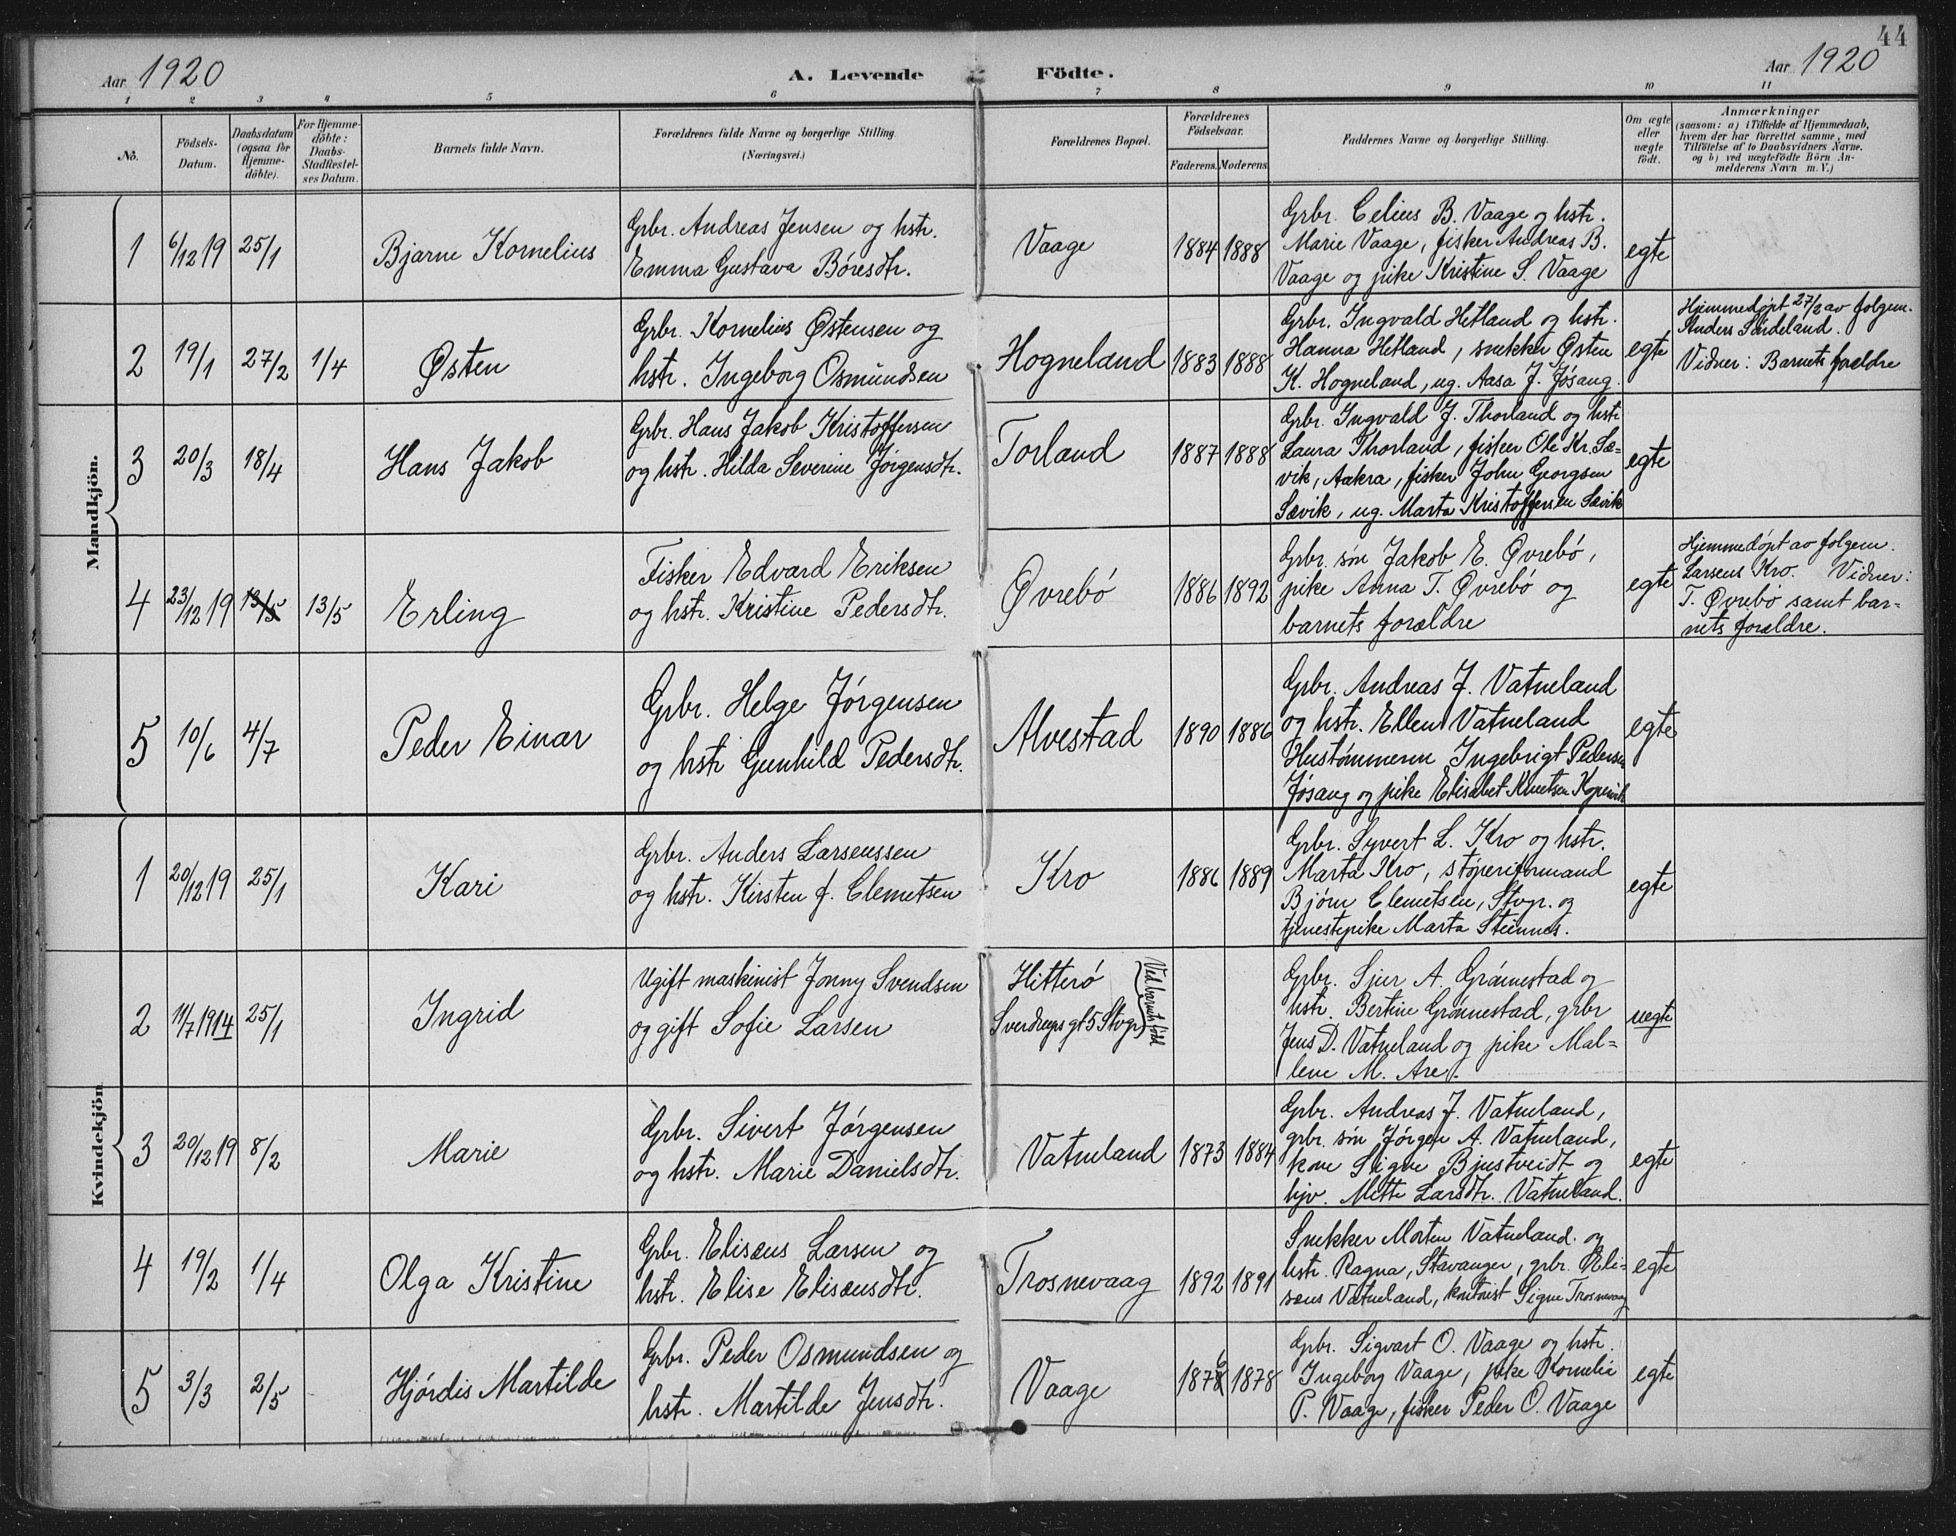 44
Aar 1920
A. Levende Födte.
Aar 1920
1 2 3 4 5 6 7 8 9 10 11
No.
Födsels-Datum.
Daabsdatum (ogsaa for Hjemme-döbte).
For Hjemme-döbte: Daabs-Stadfæstel-ses Datum.
Barnets fulde Navn.
Forældrenes fulde Navne og borgerlige Stilling
(Næringsvei.)
Forældrenes Bopæl.
Forældrenes Födselsaar.
Faderens. Moderens.
Faddernes Navne og borgerlige Stilling.
Om ægte eller uægte födt.
Anmærkninger
(saasom: a) i Tilfælde af Hjemmedaab,
hvem der har forrettet samme, med
Tilföielse af to Daabsvidners Navne.
og b) ved uægtefödte Börn An-
melderens Navn m. V.)
Mandkjön.
1 6/12 19 25/1 Bjarne Kornelius
Grbr. Andreas Jensen og hstr.
Emma Gustava Böresdtr.
Vaage 1884 1888
Grbr. Celius B. Vaage og hstr.
Marie Vaage, fisker Andreas B.
Vaage og pike Kristine S. Vaage
egte
2 19/1 27/2 1/4 Østen
Grbr. Kornelius Østensen og
hstr. Ingeborg Osmundsen
Hogneland 1883 1888
Grbr. Ingvald Hetland og hstr.
Hanna Hetland, snekker Østen
K. Hogneland, ug. Aasa J. Jósang.
egte
Hjemmedøpt 27/2 av folgem.
Anders Sördeland.
Vidner: Barnets forældre
3 20/3 18/4 Hans Jakob
Grbr. Hans Jakob Kristoffersen
og hstr. Hilda Severine Jörgensdtr.
Torland 1887 1888
Grbr. Ingvald J. Thorland og hstr
Laura Thorland, fisker Ole Kr. Sæ-
vik, Aakra, fisker John Georgsen
Sævik, ug. Marta Kristoffersen Sævik
egte
4 23/12 19 13/5 13/5 Erling
Fisker Edvard Eriksen
og hstr. Kristine Pedersdtr.
Øvrebó 1886 1892
Grbr. sön Jakob E. Øvrebó,
pike Anna T. Øvrebó og
barnets forældre
egte
Hjemmedópt av folgem.
Larsens Kro. Vidner:
T. Øvrebo samt bar-
nets forældre.
5 10/6 4/7 Peder Einar
Grbr. Helge Jörgensen
og hstr Gunhild Pedersdtr.
Alvestad 1890 1886
Grbr. Andreas J. Vatneland
og hstr. Ellen Vatneland
Hustömmerm Ingebrigt Pedersen
Jósang og pike Elisabet Knutsen Kopervik
egte
Kvindekjön
1 20/12 19 25/1 Kari
Grbr. Anders Larsenssen
og hstr. Kirsten f. Clemetsen
Kro 1886 1889
Grbr. Syvert L. Kro og hstr.
Marta Kro, stóperiformand
Bjórn Clemetsen, Stvgr. og
tjenestepike Marta Steinnes.
egte
2 11/7 1914 25/1 Ingrid
Ugift maskinist Jonny Svendsen
og gift Sofie Larsen
Hitteró
Sverdrups gt 5 Stvgr
Ved barnets fødsl
Grbr. Sjur A. Grónnestad og
hstr. Bertine Grónnestad, grbr
Jens D. Vatneland og pike Mal-
lene M. Are.
uegte
3 20/12 19 8/2 Marie
Grbr. Sivert Jörgensen
og hstr. Marie Danielsdtr.
Vatneland 1873 1884
Grbr. Andreas J. Vatneland,
grbr. sön Jörgen A. Vatneland,
kone Signe Bjustveidt og
hjv. Mette Larsdtr. Vatneland.
egte
4 19/2 1/4 Olga Kristine
Grbr. Elisæus Larsen og
hstr. Elise Elisæusdtr.
Trosnevaag 1892 1891
Snekker Morten Vatneland og
hstr. Ragna, Stavanger, grbr. Eli-
sæus Vatneland, kontorist Signe Trosnevaag
egte
5 3/3 2/5 Hjórdis Martilde
Grbr. Peder Osmundsen og
hstr. Martilde Jensdtr.
Vaage 1876 1878
Grbr. Sigvart O. Vaage og hstr.
Ingeborg Vaage, pike Kornelie
P. Vaage, fisker Peder O. Vaage
egte